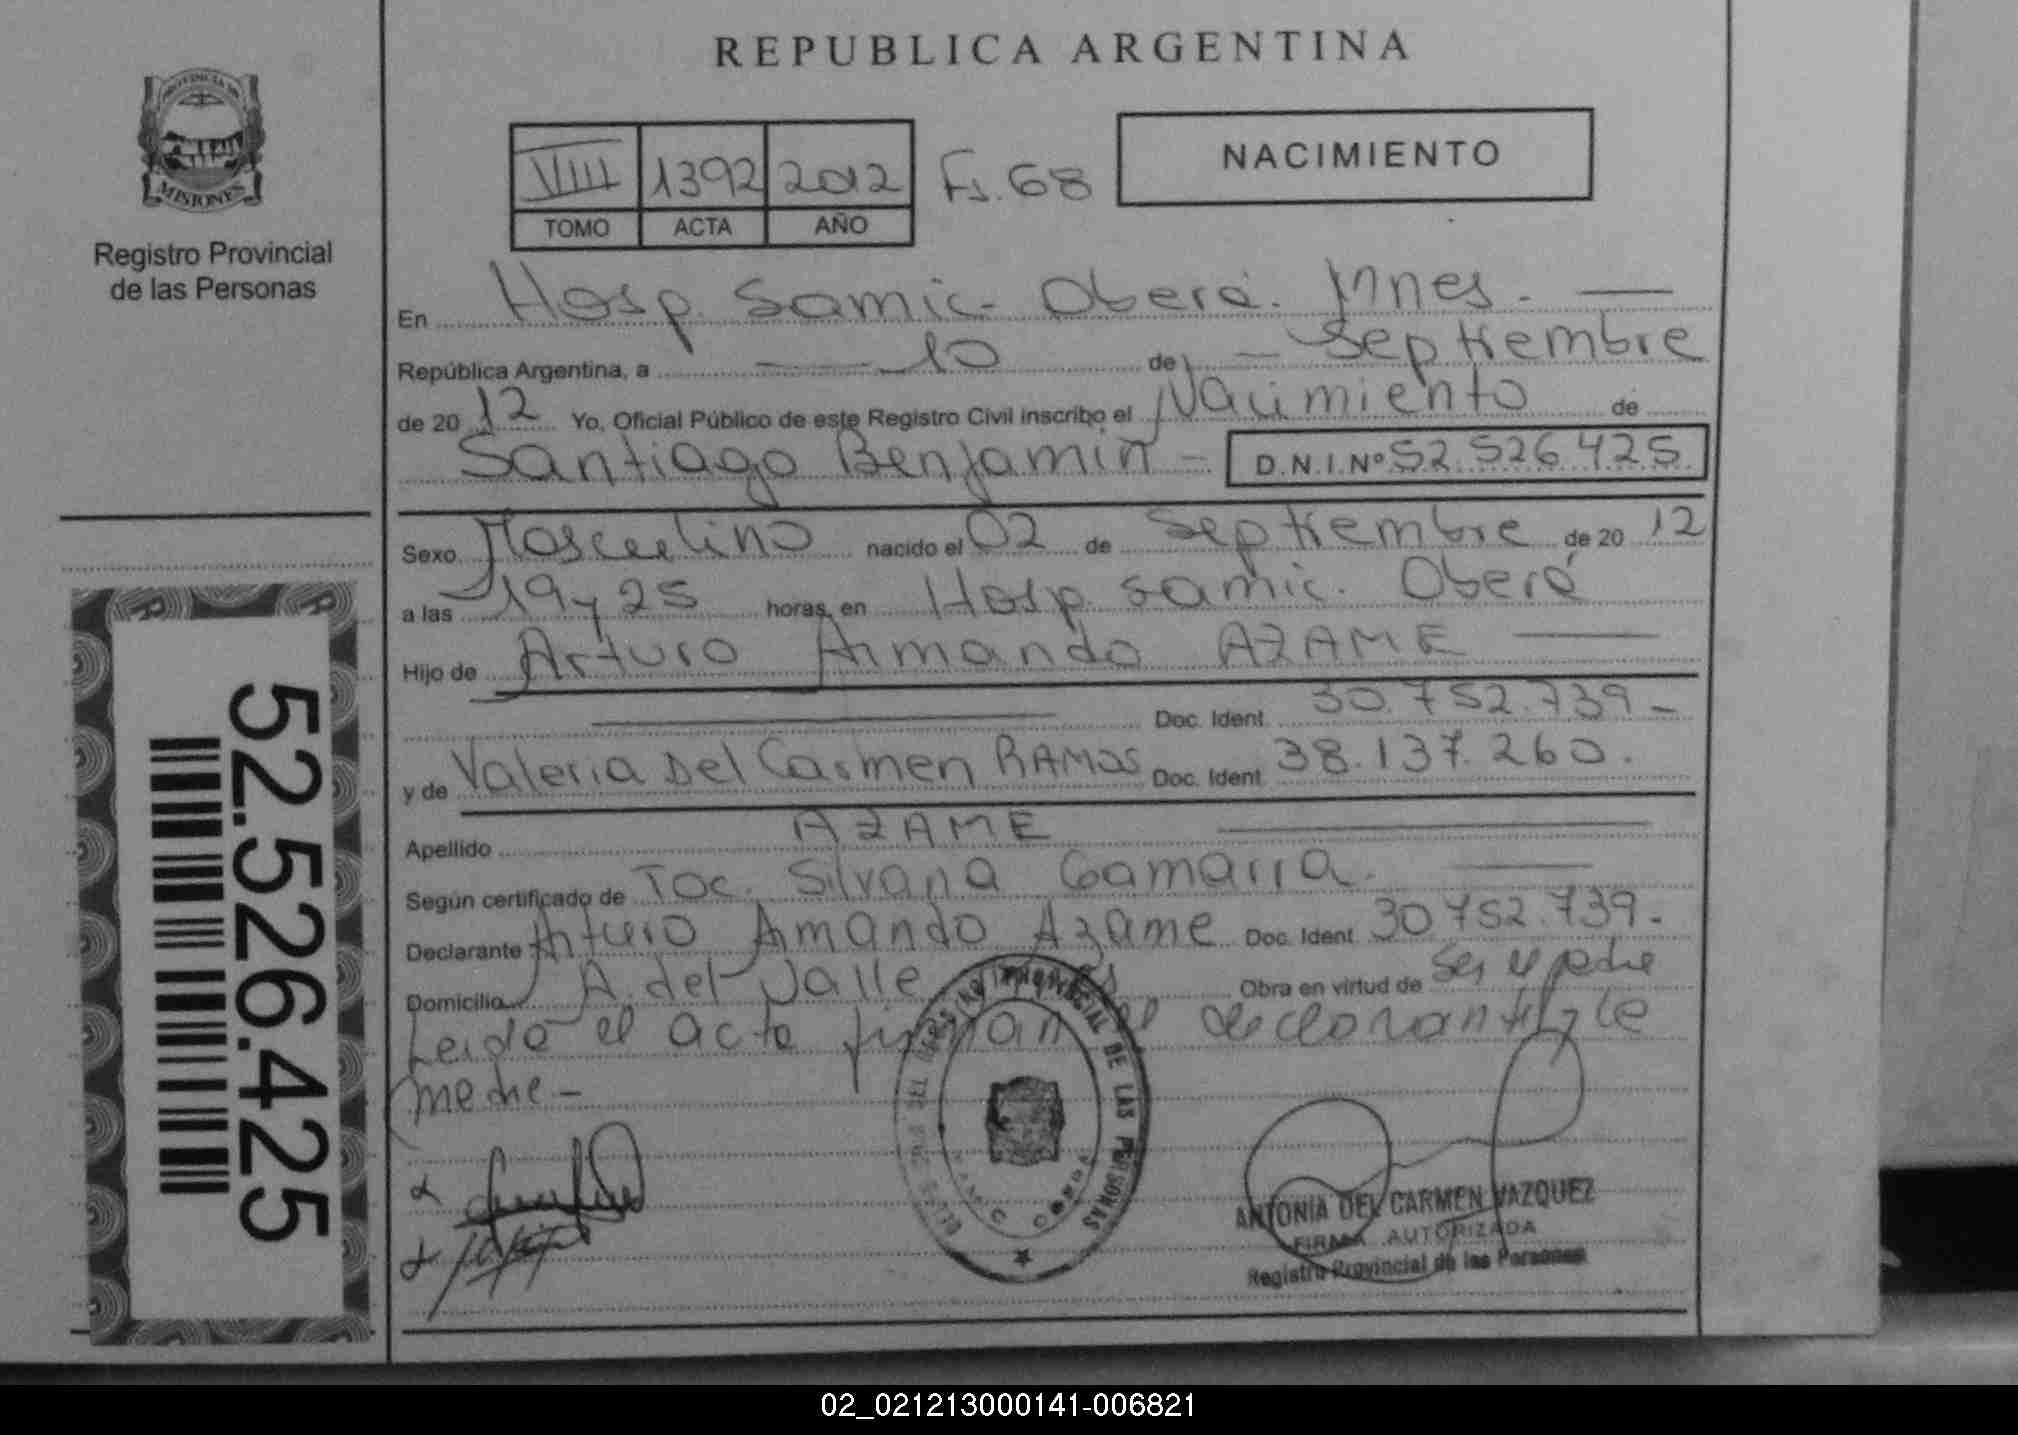 REPUBLICA ARGENTINA
PROVINCIA DE
MISIONES
Registro Provincial
de las Personas
VIII 1392 2012 Fs. 68
TOMO ACTA AÑO
NACIMIENTO
En Hosp. Samic - Oberá. Mnes. -
República Argentina, a 10 de Septiembre
de 20 12 Yo, Oficial Público de este Registro Civil inscribo el Nacimiento de
Santiago Benjamín - D.N.I.Nº 52.526.425
Sexo Masculino nacido el 02 de Septiembre de 20 12
a las 19 y 25 horas, en Hosp. Samic. Oberá
Hijo de Arturo Armando AZAME
Doc. Ident. 30.752.739 -
y de Valeria Del Carmen RAMOS Doc. Ident. 38.137.260.
Apellido AZAME
Según certificado de Toc. Silvana Gamarra.
Declarante Arturo Armando Azame Doc. Ident. 30752.739.
Domicilio A. del Valle Obra en virtud de Ser el padre
Leida el acta firman el declarante y la
madre -
REGISTRO PROVINCIAL DE LAS PERSONAS
ANTONIA DEL CARMEN VAZQUEZ
FIRMA AUTORIZADA
Registro Provincial de las Personas
52.526.425
02_021213000141-006821